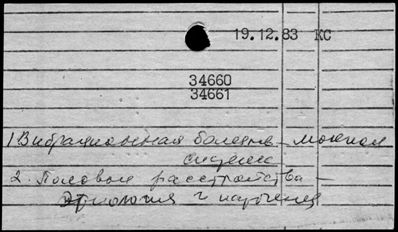 19.12.83 КС
34660
34661
1 Вибрационная болезнь - мочепол
система
2. Половые расстройства -
Этиология и патогенез